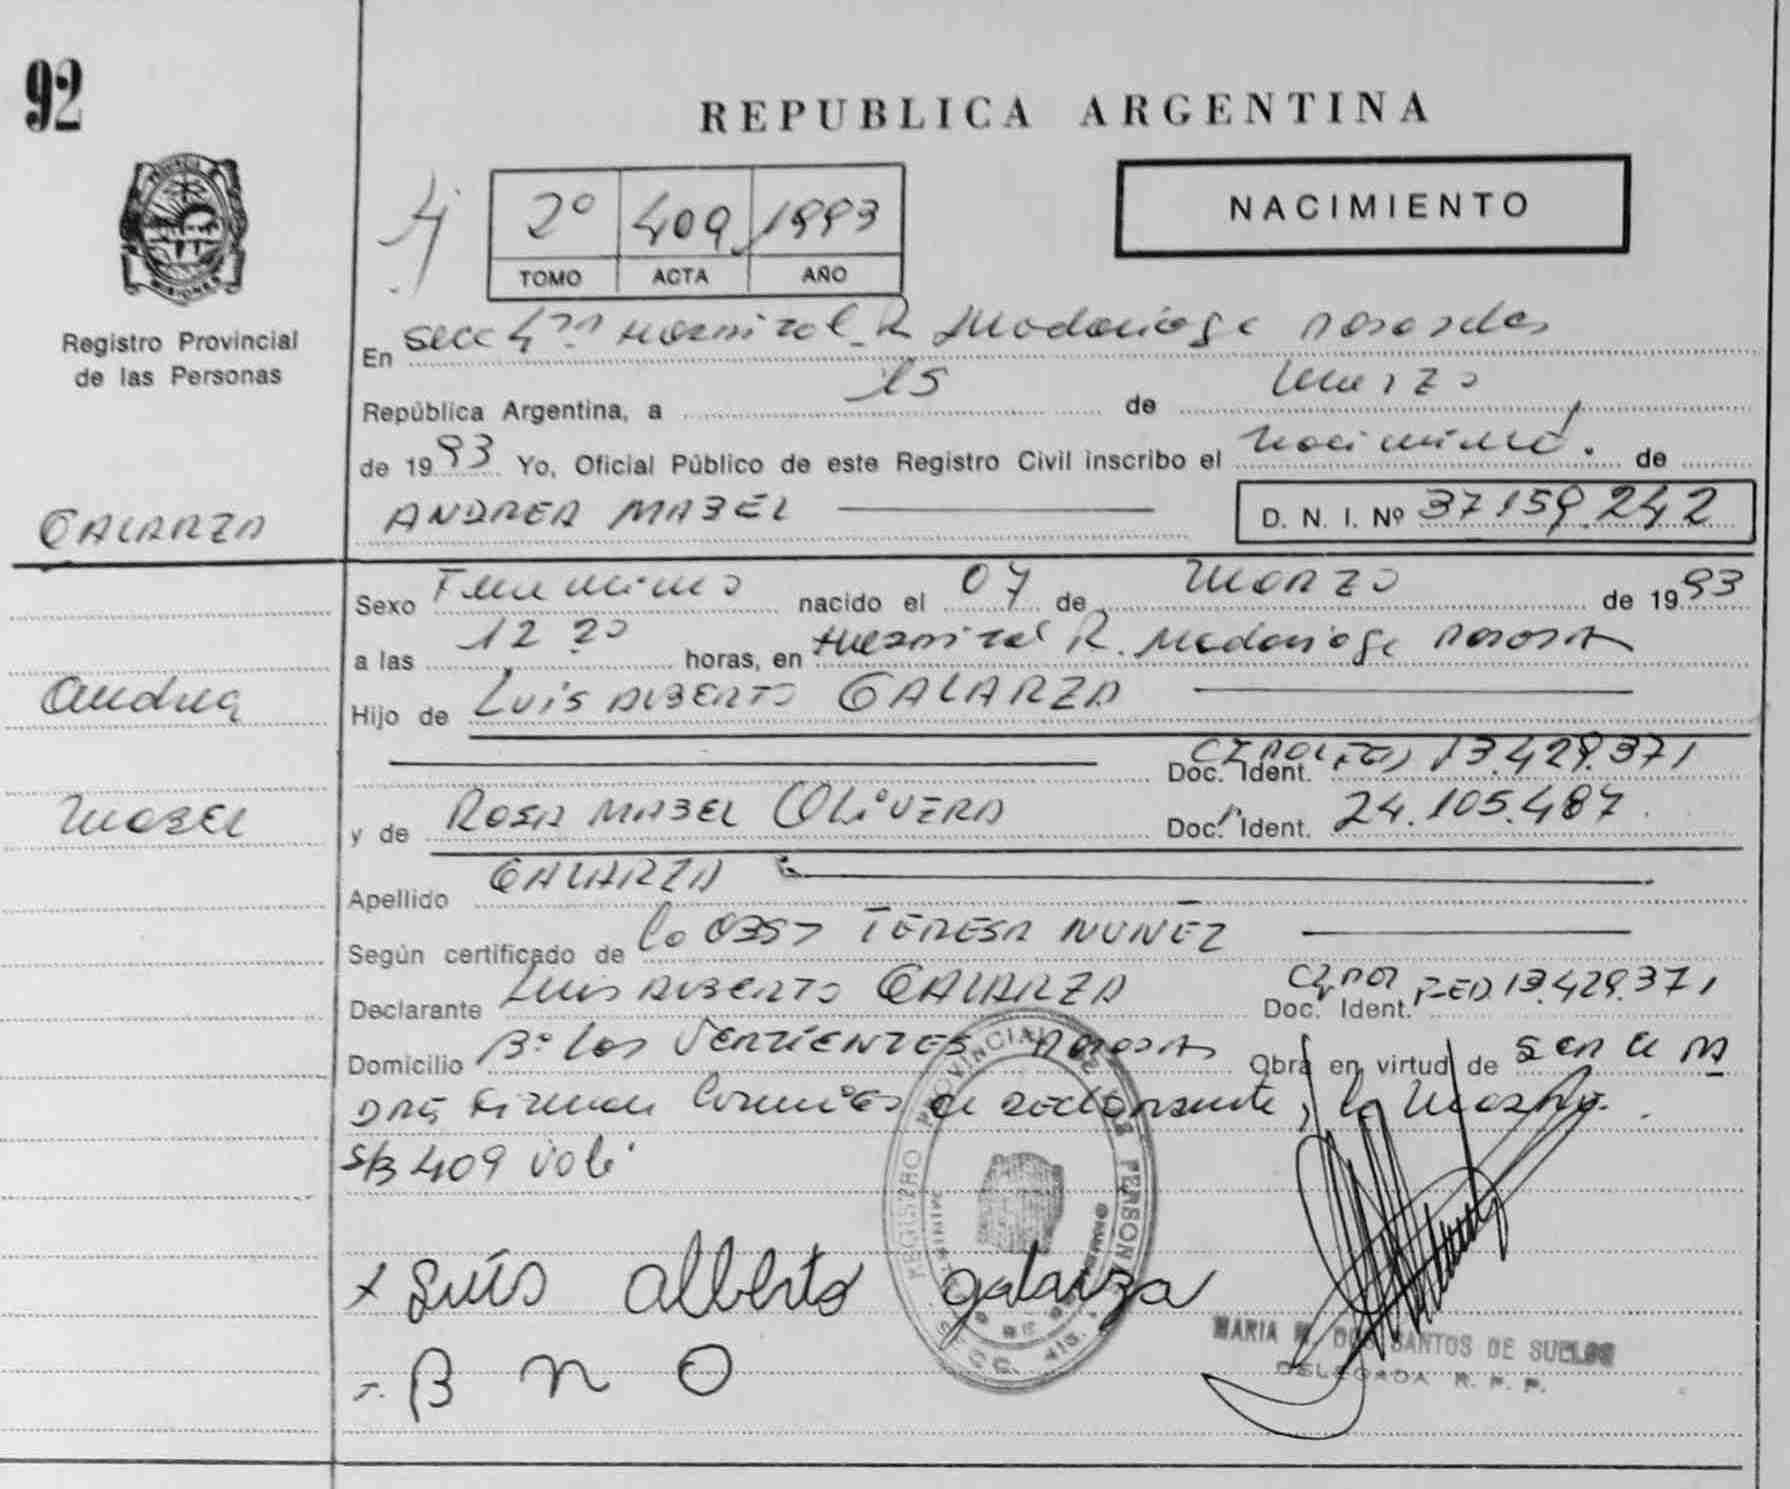 92
REPUBLICA ARGENTINA
PROVINCIA
MISIONES
Registro Provincial
de las Personas
2º 409 1993
TOMO ACTA AÑO
NACIMIENTO
En Secc 4ta Hospital R Madariaga Posadas
República Argentina, a 15 de Marzo
de 1993 Yo, Oficial Público de este Registro Civil inscribo el nacimient. de
GALARZA ANDREA MABEL D. N. I. Nº 37.159.242
Sexo Femenino nacido el 07 de Marzo de 1993
a las 12 horas, en Hospital R. Madariaga
Andrea Hijo de Luis ALBERTO GALARZA
Doc. Ident. 13.429.371
Mabel y de ROSA MABEL OLIVERA Doc. Ident. 24.105.487
Apellido GALARZA
Según certificado de la OBST TERESA NUNEZ
Declarante Luis ALBERTO GALARZA Doc. Ident. 13.429.371
Domicilio Bº Las VERTIENTES Obra en virtud de ser el
firman el declarante, la madre
S/B 409 vale
x Luis alberto galarza
B n O
REGISTRO PROVINCIAL DE LAS PERSONAS
SECC. 4TA.
MARIA DOS SANTOS DE SUELOS
DELEGADA R. P. P.